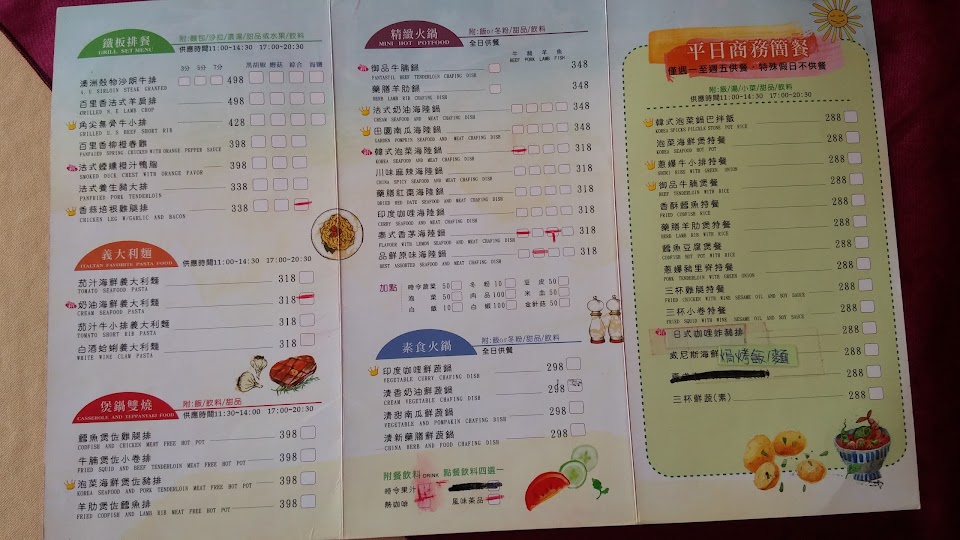 鐵板排餐
GRILL SET MENU
附:麵包/沙拉/濃湯/甜品或水果/飲料
供應時間11:00-14:30 17:00-20:30
3分 5分 7分
黑胡椒 磨菇 綜合
澳洲穀物沙朗牛排 498
A.U SIRLOIN STEAK GRANTED
百里香法式羊肩排 498
GRILLED N.S LAMB CROP
角尖無骨牛小排 428
GRILLED U.S BEEF SHORT RIB
百里香柳橙春雞 398
PANFAIED SPRING CHICKEN WITH ORANGE PEPPER SAUCE
法式煙燻橙汁鴨胸 398
SMOKED DUCK CHEST WITH ORANGE FAVOR
法式養生豬大排 338
PANFRIED PORK TENDERLOIN
香蒜培根雞腿排 338
CHICKEN LEG W/GARLIC AND BACON
義大利麵
ITALIAN FAVORITE PASTA FOOD
附:麵包/沙拉/濃湯/甜品/飲料
供應時間11:00-14:30 17:00-20:30
茄汁海鮮義大利麵 318
TOMATO SEAFOOD PASTA
奶油海鮮義大利麵 318
CREAM SEAFOOD PASTA
茄汁牛小排義大利麵 318
TOMATO SHORT RIB PASTA
白酒蛤蜊義大利麵 318
WHITE WINE CLAW PASTA
煲鍋雙燒
CASSEROLE AND TEPPANYAKI FOOD
附:飯/飲料/甜品
供應時間11:30-14:00 17:00-20:30
鱈魚煲佐雞腿排 398
CODFISH AND CHICKEN MEAT FREE HOT POT
牛腩煲佐小卷排 398
FRIED SQUID AND BEEF TENDERLOIN MEAT FREE HOT POT
泡菜海鮮煲佐豬排 398
KOREA SEAFOOD AND PORK TENDERLOIN MEAT FREE HOT POT
羊肋煲佐鱈魚排 398
FRIED CODFISH AND LAMB RIB MEAT FREE HOT POT
精緻火鍋
MINI HOT POTFOOD
附:飯or冬粉/甜品/飲料
全日供餐
牛 豬 羊 魚
BEEF PORK LAMB FISH
御品牛腩鍋 348
FANTASTIL BEEF TENDERLOIN CHAFING DISH
藥膳羊肋鍋 348
HERB LAMB RIB CHAFING DISH
法式奶油海陸鍋 348
CREAM SEAFOOD AND MEAT CHAFING DISH
田園南瓜海陸鍋 348
GARDEN PUMPKIN SEAFOOD AND MEAT CHAFING DISH
韓式泡菜海陸鍋 348
KOREA SEAFOOD AND MEAT CHAFING DISH
川味麻辣海陸鍋 318
CHINA SPICY SEAFOOD AND MEAT CHAFING DISH
藥膳紅棗海陸鍋 318
DRIED RED DATE SEAFOOD AND MEAT CHAFING DISH
印度咖哩海陸鍋 318
CURRY SEAFOOD AND MEAT CHAFING DISH
泰式香茅海陸鍋 318
FLAVOUR WITH LEMON SEAFOOD AND MEAT CHAFING DISH
品鮮原味海陸鍋 318
BEST ASSORTED SEAFOOD AND MEAT CHAFING DISH
加點
時令蔬菜 50 冬粉 10 豆皮 50
泡菜 50 肉品 100 米血 50
白飯 10 白蝦 100 金針菇 50
素食火鍋
附:飯or冬粉/甜品/飲料
全日供餐
印度咖哩鮮蔬鍋 298
VEGETABLE CURRY CHAFING DISH
清香奶油鮮蔬鍋 298
CREAM VEGETABLE CHAFING DISH
清甜南瓜鮮蔬鍋 298
VEGETABLE AND PUMPAKIN CHAFING DISH
清新藥膳鮮蔬鍋 298
CHINA HERB AND FOOD CHAFING DISH
附餐飲料 DRINK 點餐飲料四選一
時令果汁
熱咖啡 風味茶品
平日商務簡餐
僅週一至週五供餐,特殊假日不供餐
附:飯/湯/小菜/甜品/飲料
供應時間11:00-14:30 17:00-20:30
韓式泡菜鍋巴拌飯 288
KOREA SPICKY PICKLE STONE POT RICE
泡菜海鮮煲特餐 288
KOREA SEAFOOD HOT POT
蔥爆牛小排特餐 288
SHORI RIBS WITH GREEN ONION
御品牛腩煲特餐 288
BEEF TENDERLOIN WITH RICE
香酥鱈魚特餐 288
FRIED CODFISH RICE
藥膳羊肋煲特餐 288
HERB LAMB RIB WITH RICE
鱈魚豆腐煲特餐 288
CODFISH HOT POT WITH RICE
蔥爆豬里脊特餐 288
PORK TENDERLOIN WITH GREEN ONION
三杯雞腿特餐 288
FRIED CHICKEN WITH WINE SESAME OIL AND SOY SAUCE
三杯小卷特餐 288
FRIED SQUID WITH WINE SESAME OIL AND SOY SAUCE
日式咖哩炸豬排 288
威尼斯海鮮焗烤飯/麵 288
三杯鮮蔬(素) 288